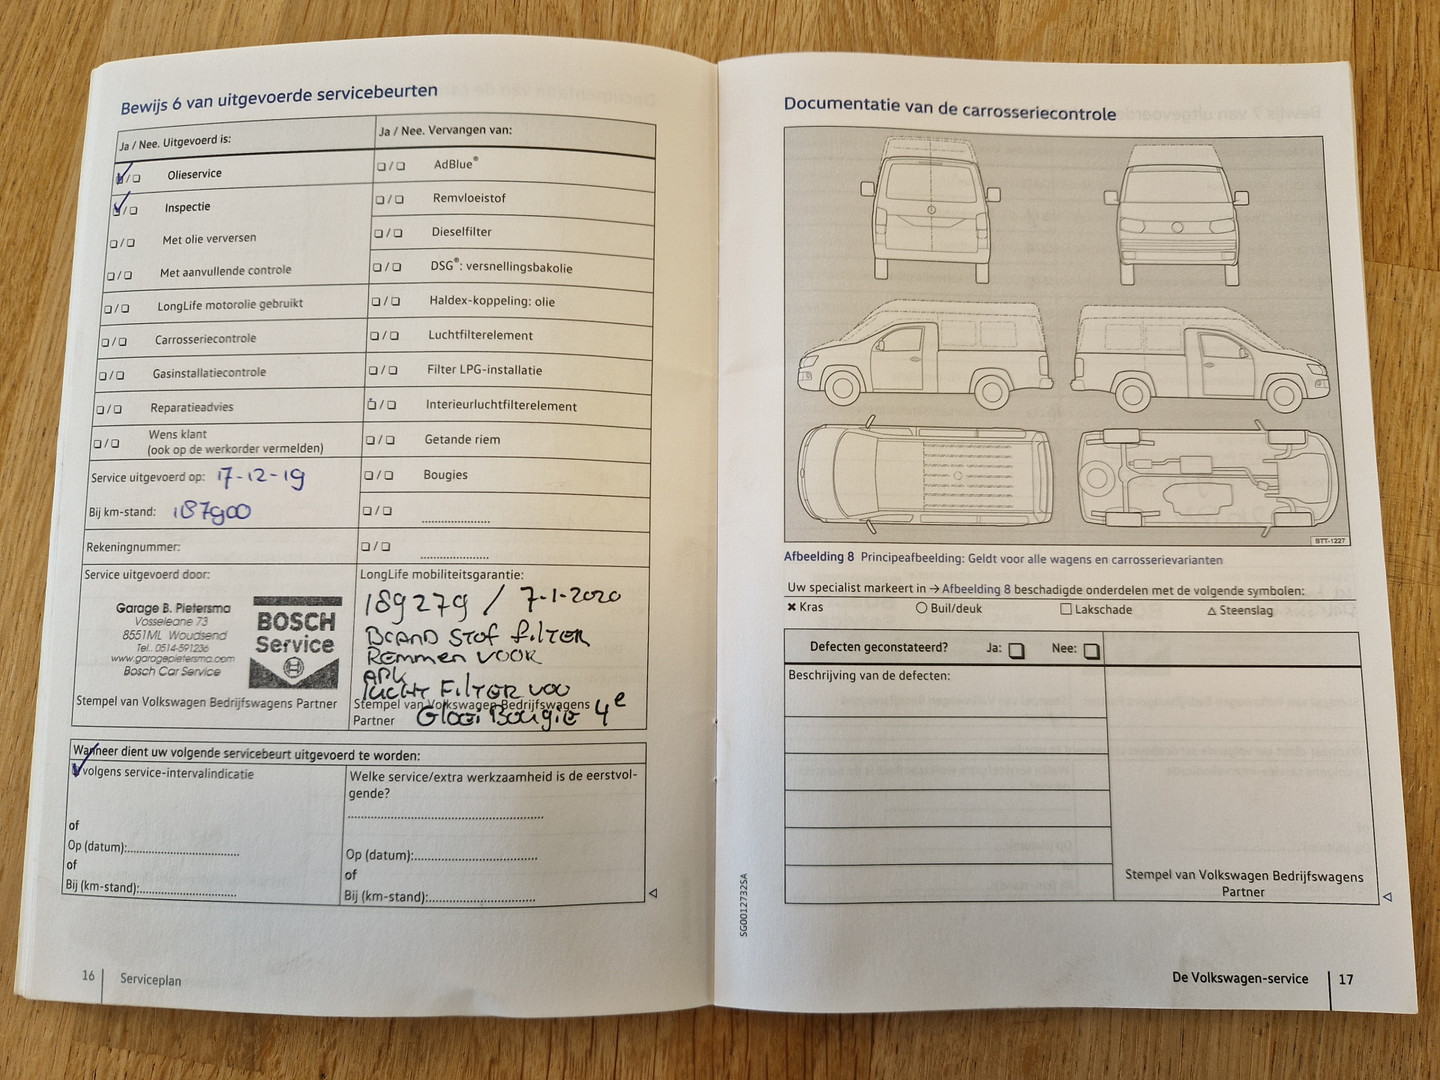 Bewijs 6 van uitgevoerde servicebeurten
Ja / Nee. Uitgevoerd is:
Olieservice
Inspectie
Met olie verversen
Met aanvullende controle
LongLife motorolie gebruikt
Carrosseriecontrole
Gasinstallatiecontrole
Reparatieadvies
Wens klant
(ook op de werkorder vermelden)
Service uitgevoerd op: 17-12-19
Bij km-stand: 187900
Rekeningnummer:
Service uitgevoerd door:
Garage B. Pietersma
Vosseleane 73
8551ML Woudsend
Tel.. 0514-591236
www.garagepietersma.com
Bosch Car Service
BOSCH
Service
Stempel van Volkswagen Bedrijfswagens Partner
Ja / Nee. Vervangen van:
AdBlue®
Remvloeistof
Dieselfilter
DSG®: versnellingsbakolie
Haldex-koppeling: olie
Luchtfilterelement
Filter LPG-installatie
Interieurluchtfilterelement
Getande riem
Bougies
LongLife mobiliteitsgarantie:
189279 / 7-1-2020
BRAND STOF FILTER
Remmen VOOR
APK
lucht FILTER
Stempel van Volkswagen Bedrijfswagens
Partner
GloeiBougie 4e
Wanneer dient uw volgende servicebeurt uitgevoerd te worden:
volgens service-intervalindicatie
of
Op (datum):
of
Bij (km-stand):
Welke service/extra werkzaamheid is de eerstvol-
gende?
Op (datum):
of
Bij (km-stand):
16 Serviceplan
Documentatie van de carrosseriecontrole
BTT-1227
Afbeelding 8 Principeafbeelding: Geldt voor alle wagens en carrosserievarianten
Uw specialist markeert in → Afbeelding 8 beschadigde onderdelen met de volgende symbolen:
Kras Buil/deuk Lakschade Steenslag
Defecten geconstateerd? Ja: Nee:
Beschrijving van de defecten:
Stempel van Volkswagen Bedrijfswagens
Partner
SG0012732SA
De Volkswagen-service 17